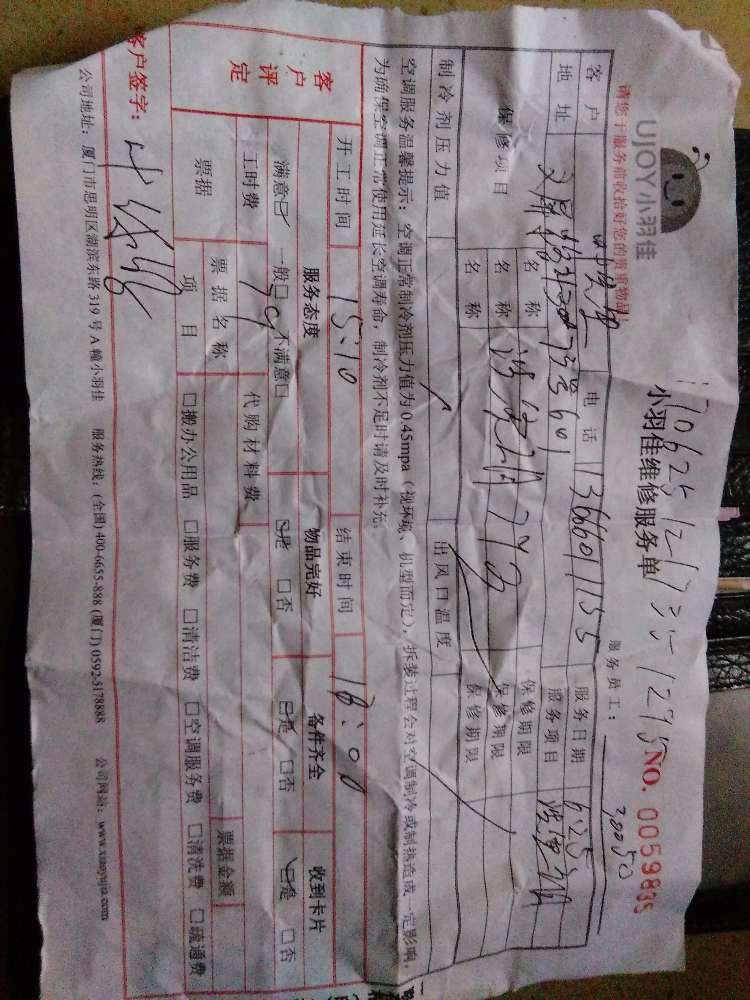 UJOY小羽佳
请您于服务前收拾好您的贵重物品!
小羽佳维修服务单
NO. 0059835
服务员工:
客户 电话 13666011155 服务日期 6.25
地址 服务项目
保修项目 名称 保修期限
名称 保修期限
名称 保修期限
制冷剂压力值 出风口温度
空调服务温馨提示: 空调正常制冷剂压力值为0.45mpa (视环境、机型而定), 拆装过程会对空调制冷或制热造成一定影响,
为确保空调正常使用延长空调寿命, 制冷剂不足时请及时补充。
客户评定 开工时间 15:10 结束时间 18:00
服务态度 物品完好 备件齐全 收到卡片
满意☑ 一般□ 不满意□ ☑是 □否 ☑是 □否 ☑是 □否
工时费 79 代购材料费
票据 票据名称 票据金额
项目 □搬办公用品 □服务费 □清洁费 □空调服务费 □清洗费 □疏通费
客户签字:
公司地址: 厦门市思明区湖滨东路319号A幢小羽佳 服务热线: (全国) 400-6655-888 (厦门) 0592-5178888 公司网站: www.xiaoyujia.com